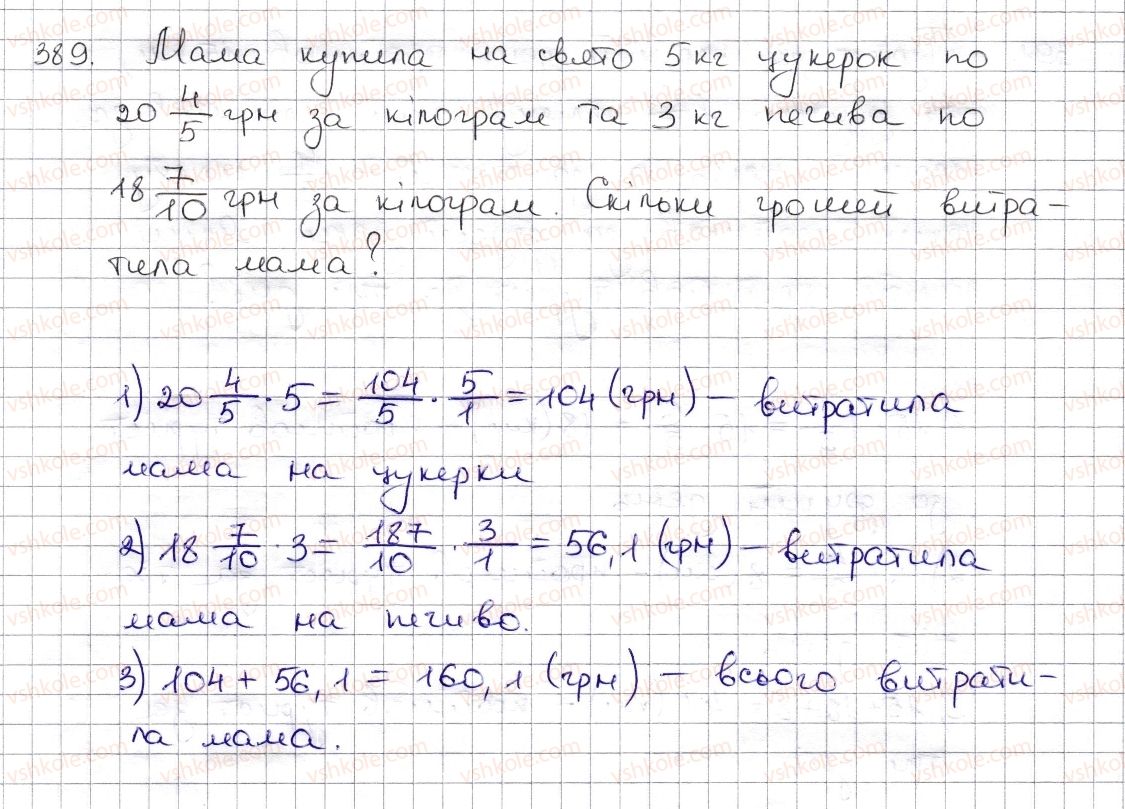 389. Мама купила на свято 5 кг цукерок по
20 4/5 грн за кілограм та 3 кг печива по
18 7/10 грн за кілограм. Скільки грошей витра-
тила мама?
1) 20 4/5 · 5 = 104/5 · 5/1 = 104 (грн) – витратила
мама на цукерки
2) 18 7/10 · 3 = 187/10 · 3/1 = 56,1 (грн) – витратила
мама на печиво.
3) 104 + 56,1 = 160,1 (грн) – всього витрати-
ла мама.
vshkole.com